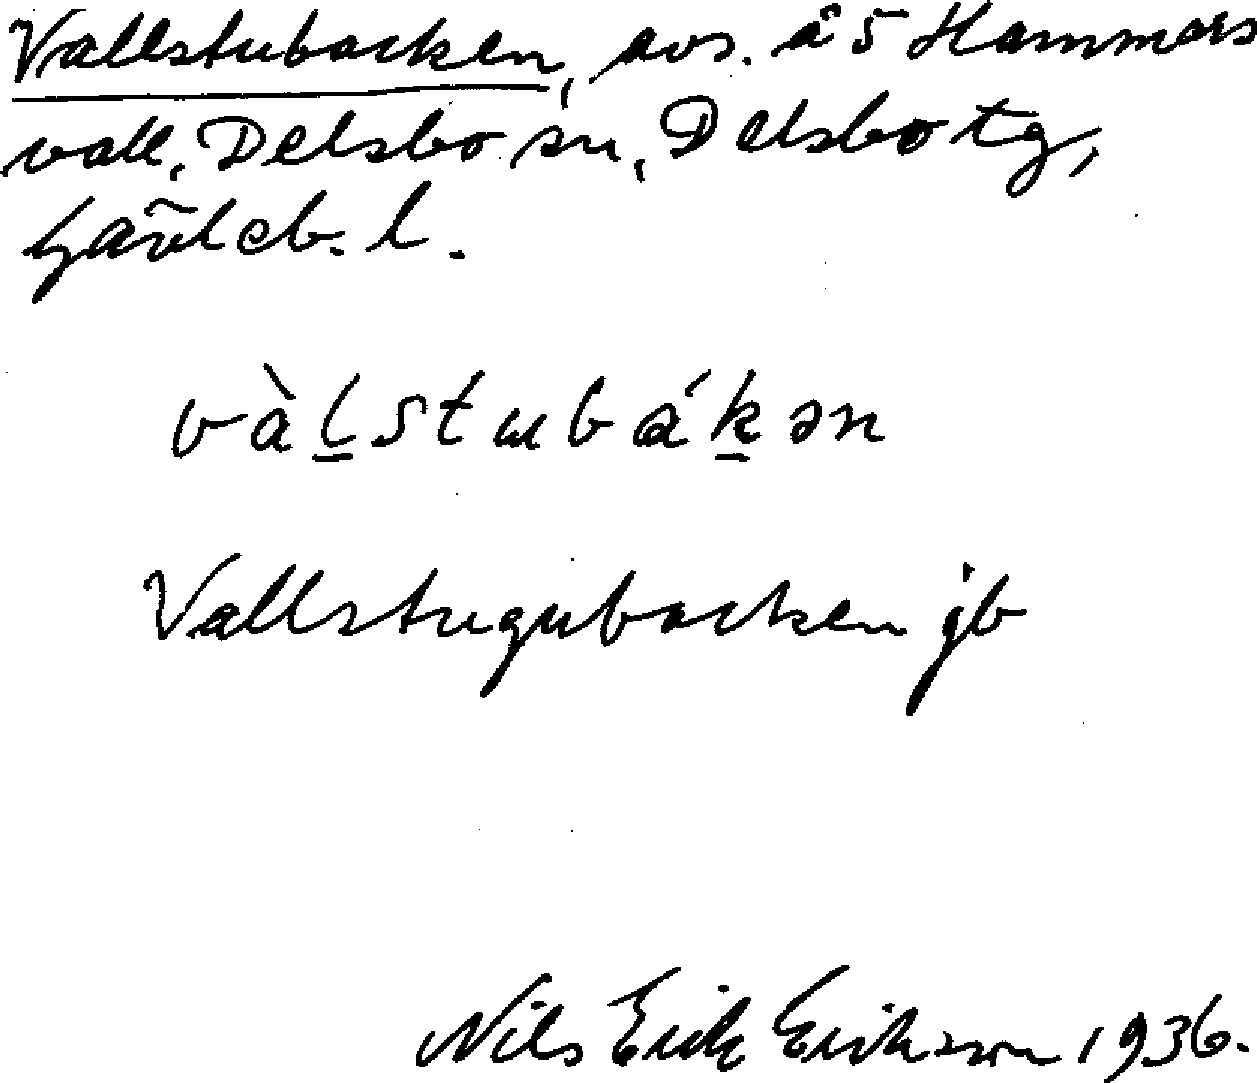 Vallstubacken, avs. å 5 Hammars
vall, Delsbo sn, Delsbo tg,
Gävleb. l.
vàl̠stubák̠ən
Vallstugubacken jb
Nils Erik Erikson 1936.